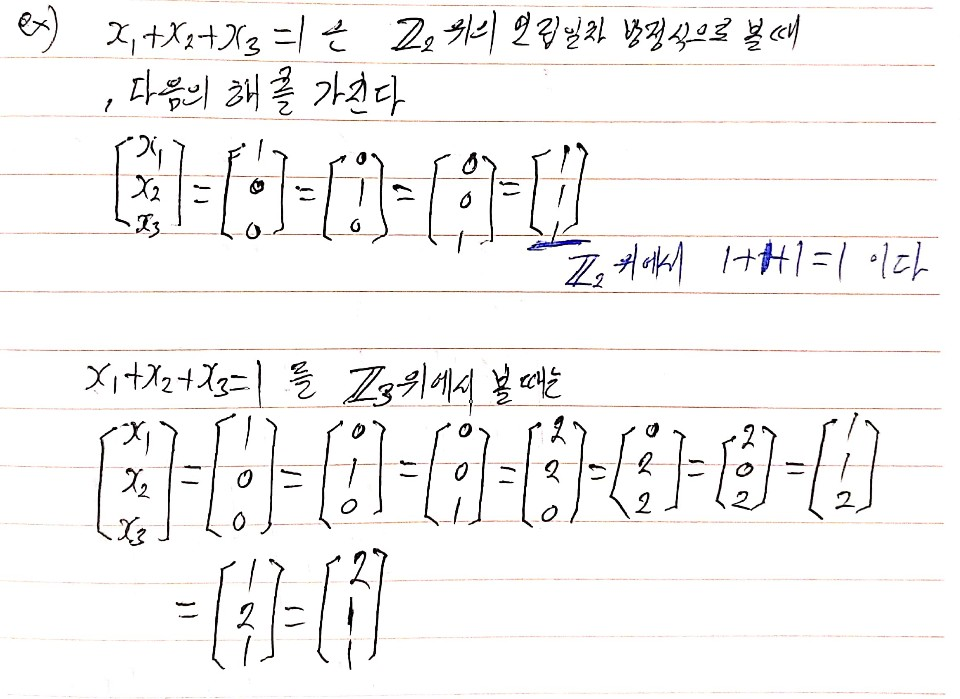 ex) x₁+x₂+x₃=1 은 ℤ₂ 위의 연립일차 방정식으로 볼때
, 다음의 해를 가진다
[x₁ x₂ x₃] = [1 0 0] = [0 1 0] = [0 0 1] = [1 1 1]
ℤ₂ 위에서 1+1+1=1 이다
x₁+x₂+x₃=1 를 ℤ₃위에서 볼때는
[x₁ x₂ x₃] = [1 0 0] = [0 1 0] = [0 0 1] = [2 2 0] = [0 2 2] = [2 0 2] = [1 1 2]
= [1 2 1] = [2 1 1]